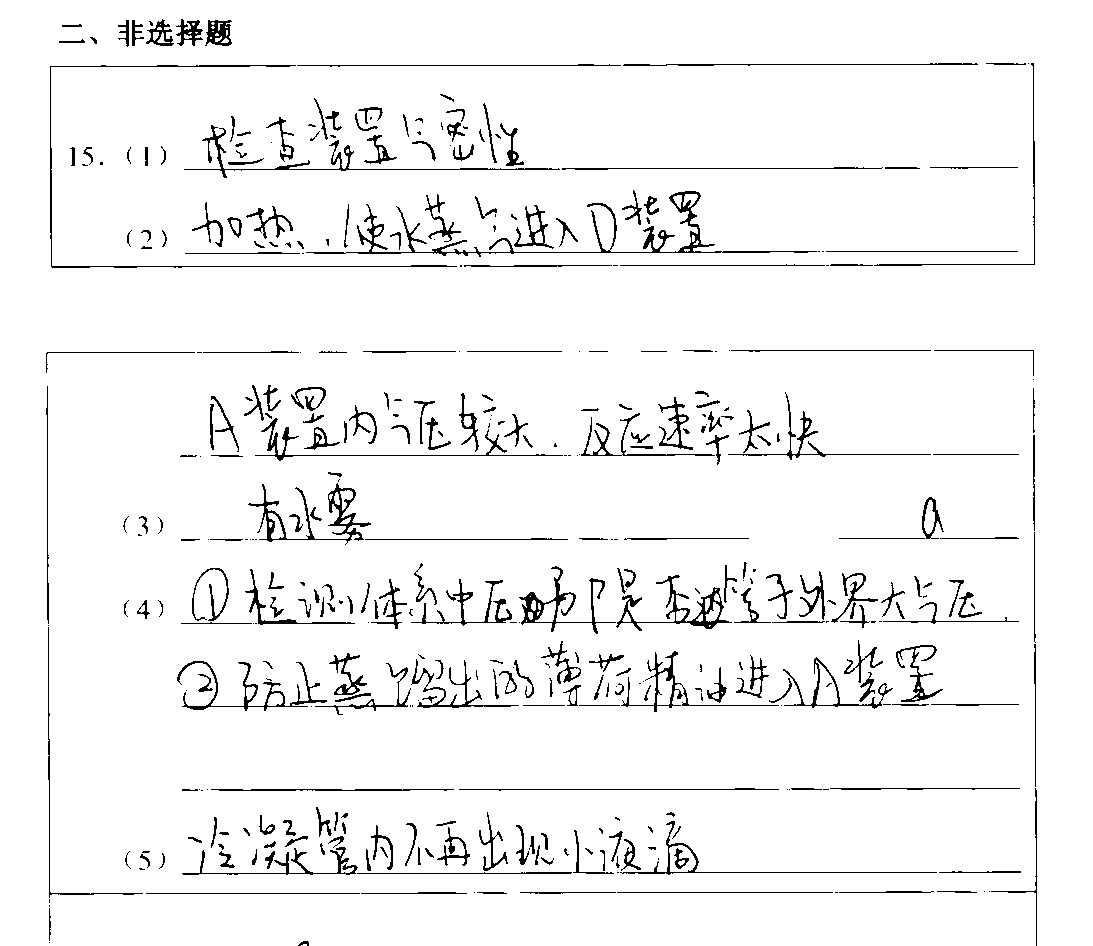 二、非选择题
15.（1）检查装置气密性
（2）加热，使水蒸气进入D装置
A装置内气压较大，反应速率太快
（3）有水雾 a
（4）①检测体系中压 是否 等于外界大气压.
②防止蒸馏出的薄荷精油进入A装置
（5）冷凝管内不再出现小液滴